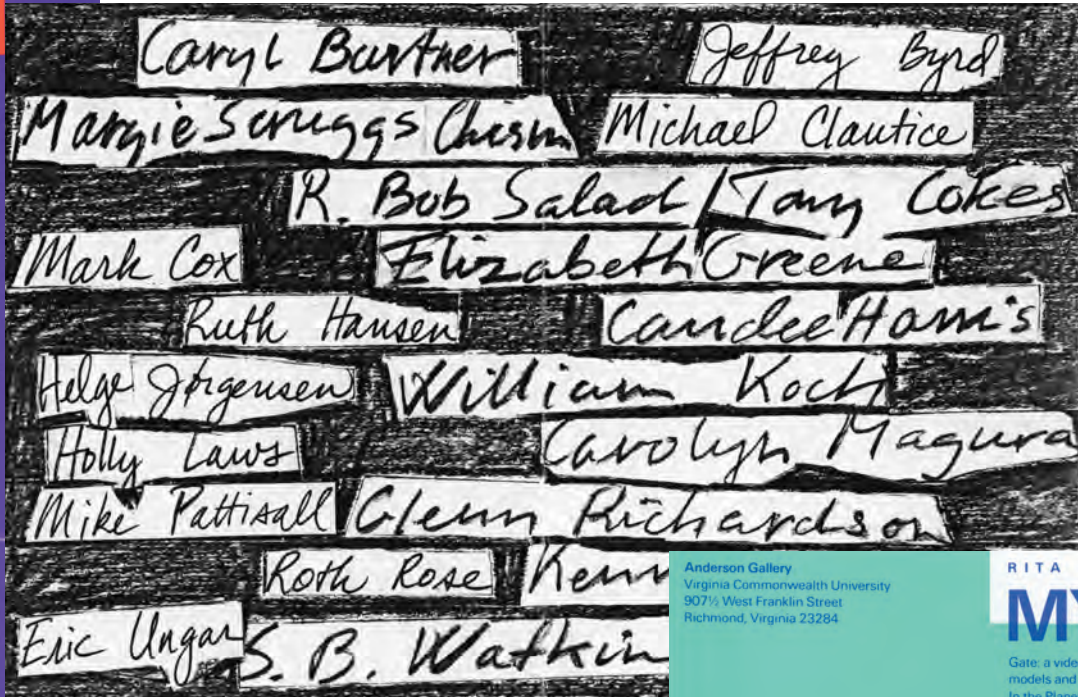 Caryl Burtner Jeffrey Byrd
Margie Scruggs Chism Michael Clautice
R. Bob Salad Tony Cokes
Mark Cox Elizabeth Greene
Ruth Hansen Candee Harris
Helge Jørgensen William Koch
Holly Laws Carolyn Magura
Mike Pattisall Glenn Richardson
Roth Rose
Eric Ungar S. B. Watkin
Anderson Gallery
Virginia Commonwealth University
907½ West Franklin Street
Richmond, Virginia 23284
RITA
Gate: a vide
models and
In the Plane